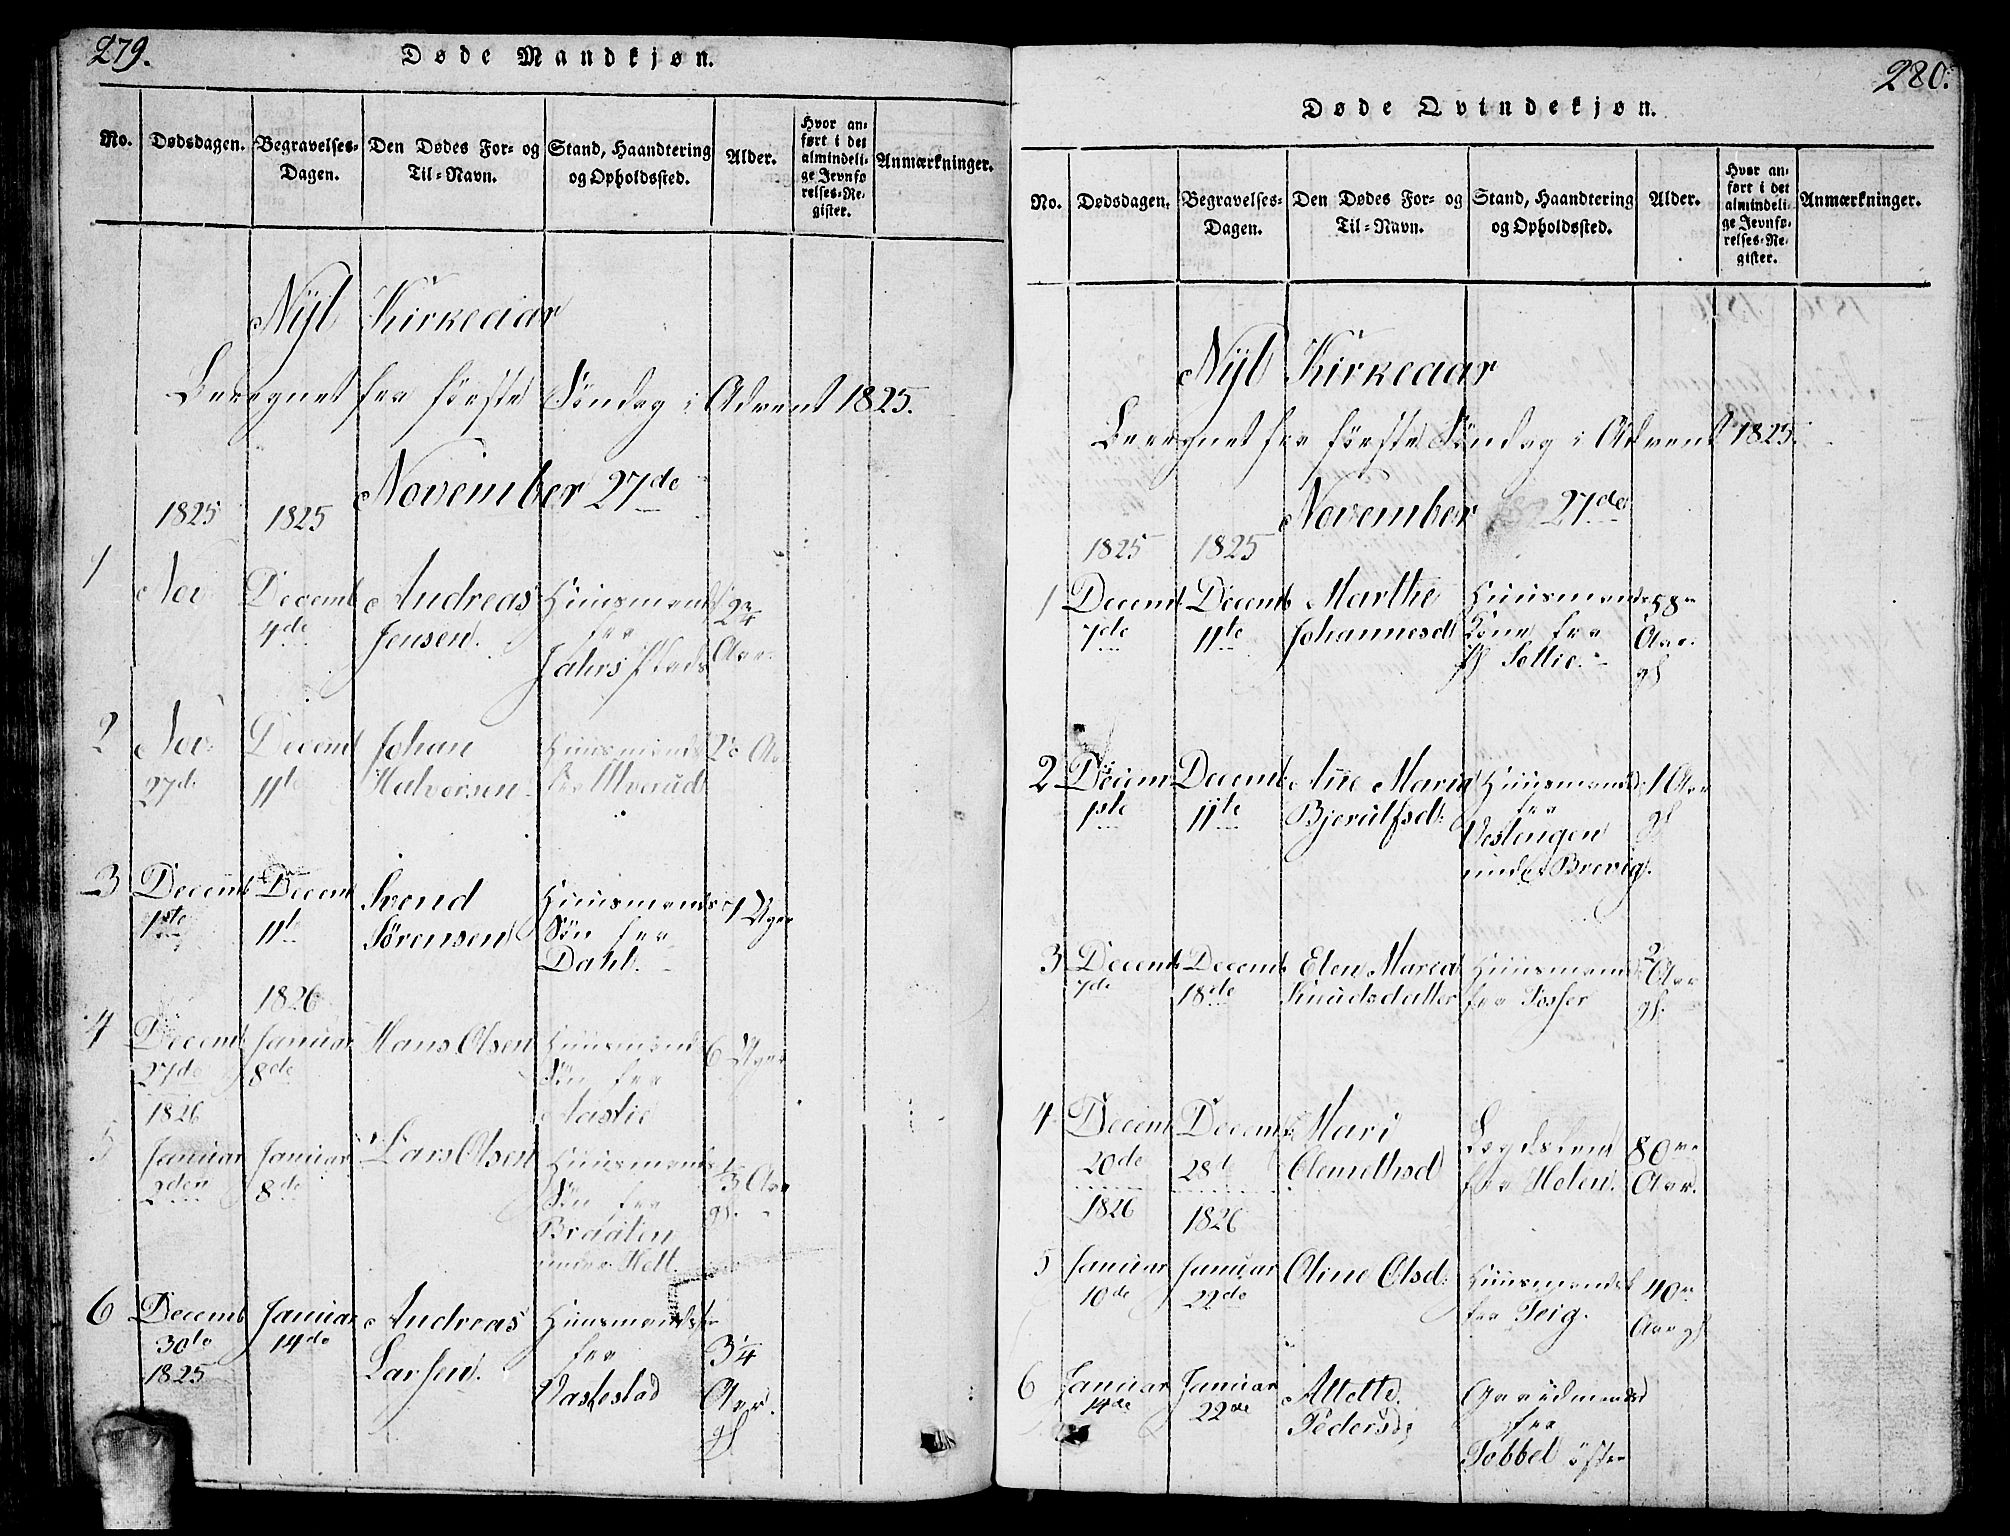 279.
Døde Mandkjøn.
No. Dødsdagen. Begravelses-Dagen. Den Dødes For- og Til-Navn. Stand, Haandtering og Opholdssted. Alder. Hvor anført i det almindelige Jevnførelses-Register. Anmærkninger.
Nyt Kirkeaar
Beregnet fra første Søndag i Advent 1825.
November 27de
1825 1825
1 Nov Decemb 4de Andreas Jensen. Huusmands fra Aar.
2 Nov 27de Decemb 11te Johan Halvorsen Huusmands fra Ulverud
3 Decemb 1ste Decem 11te Svend Sørensen Huusmands Søn fra Dahl. Uger
1826
4 Decemb 27de Januar 8de Hans Olsen Huusmands Søn fra 6 Uger
1826
5 Januar 2den Januar 8de Lars Olsen Huusmands Søn fra Braaten under 3 Aar gl.
6 Decemb 30te 1825 Januar 14de Andreas Larsen Huusmands fra Vastestad 34 Aar. gl
280.
Døde Qvindekjøn.
No. Dødsdagen. Begravelses-Dagen. Den Dødes For- og Til-Navn. Stand, Haandtering og Opholdssted. Alder. Hvor anført i det almindelige Jevnførelses-Register. Anmærkninger.
Nyt Kirkeaar
Beregnet fra første Søndag i Advent 1825.
November 27de
1825 1825
1 Decemb 7de Decemb 11te Marthe Johannesd Huusmands Kone fra 58 Aar gl
2 Decem 1ste Decemb 11te Ane Maria Bjerulfsd: Huusmands fra Vestengen under Brevig. 1 Aar gl
3 Decemb 7de Decemb 18de Elen Maria Knudsdatter Huusmands fra Tosser 2 Aar gl.
4 Decem 20de Decemb 28de Mari Clemethsd Lægdslem fra Holen. 80 Aar.
1826 1826
5 Januar 10de Januar 22de Oline Olsd: Huusmands fra Teig. 40 Aar gl
6 Januar 14de Januar 22de Attette Pedersd Gaardmands fra Tobbel